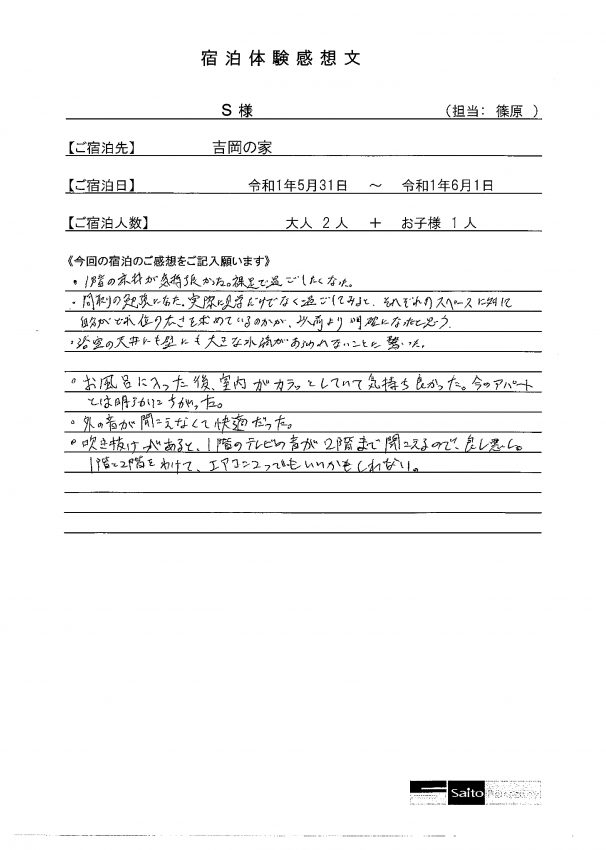 宿泊体験感想文
S 様 (担当: 篠原 )
【ご宿泊先】 吉岡の家
【ご宿泊日】 令和1年5月31日 ～ 令和1年6月1日
【ご宿泊人数】 大人 2 人 ＋ お子様 1 人
《今回の宿泊のご感想をご記入願います》
・1階の床材が気持良かった。裸足で過ごしたくなった。
・間取りの勉強になった。実際に見学だけでなく過ごしてみると、それぞれのスペースに対して
自分がどれ位の広さを求めているのかが、以前より明確になったと思う。
・浴室の天井にも壁にも大きな水滴があらわれないことに驚いた。
・お風呂に入った後、室内がカラッとしていて気持ち良かった。今のアパート
とは明らかにちがった。
・外の音が聞こえなくて快適だった。
・吹き抜けがあると、1階のテレビの音が2階まで聞こえるので、良し悪し。
1階と2階をわけて、エアコン2つでもいいかもしれない。
Saito